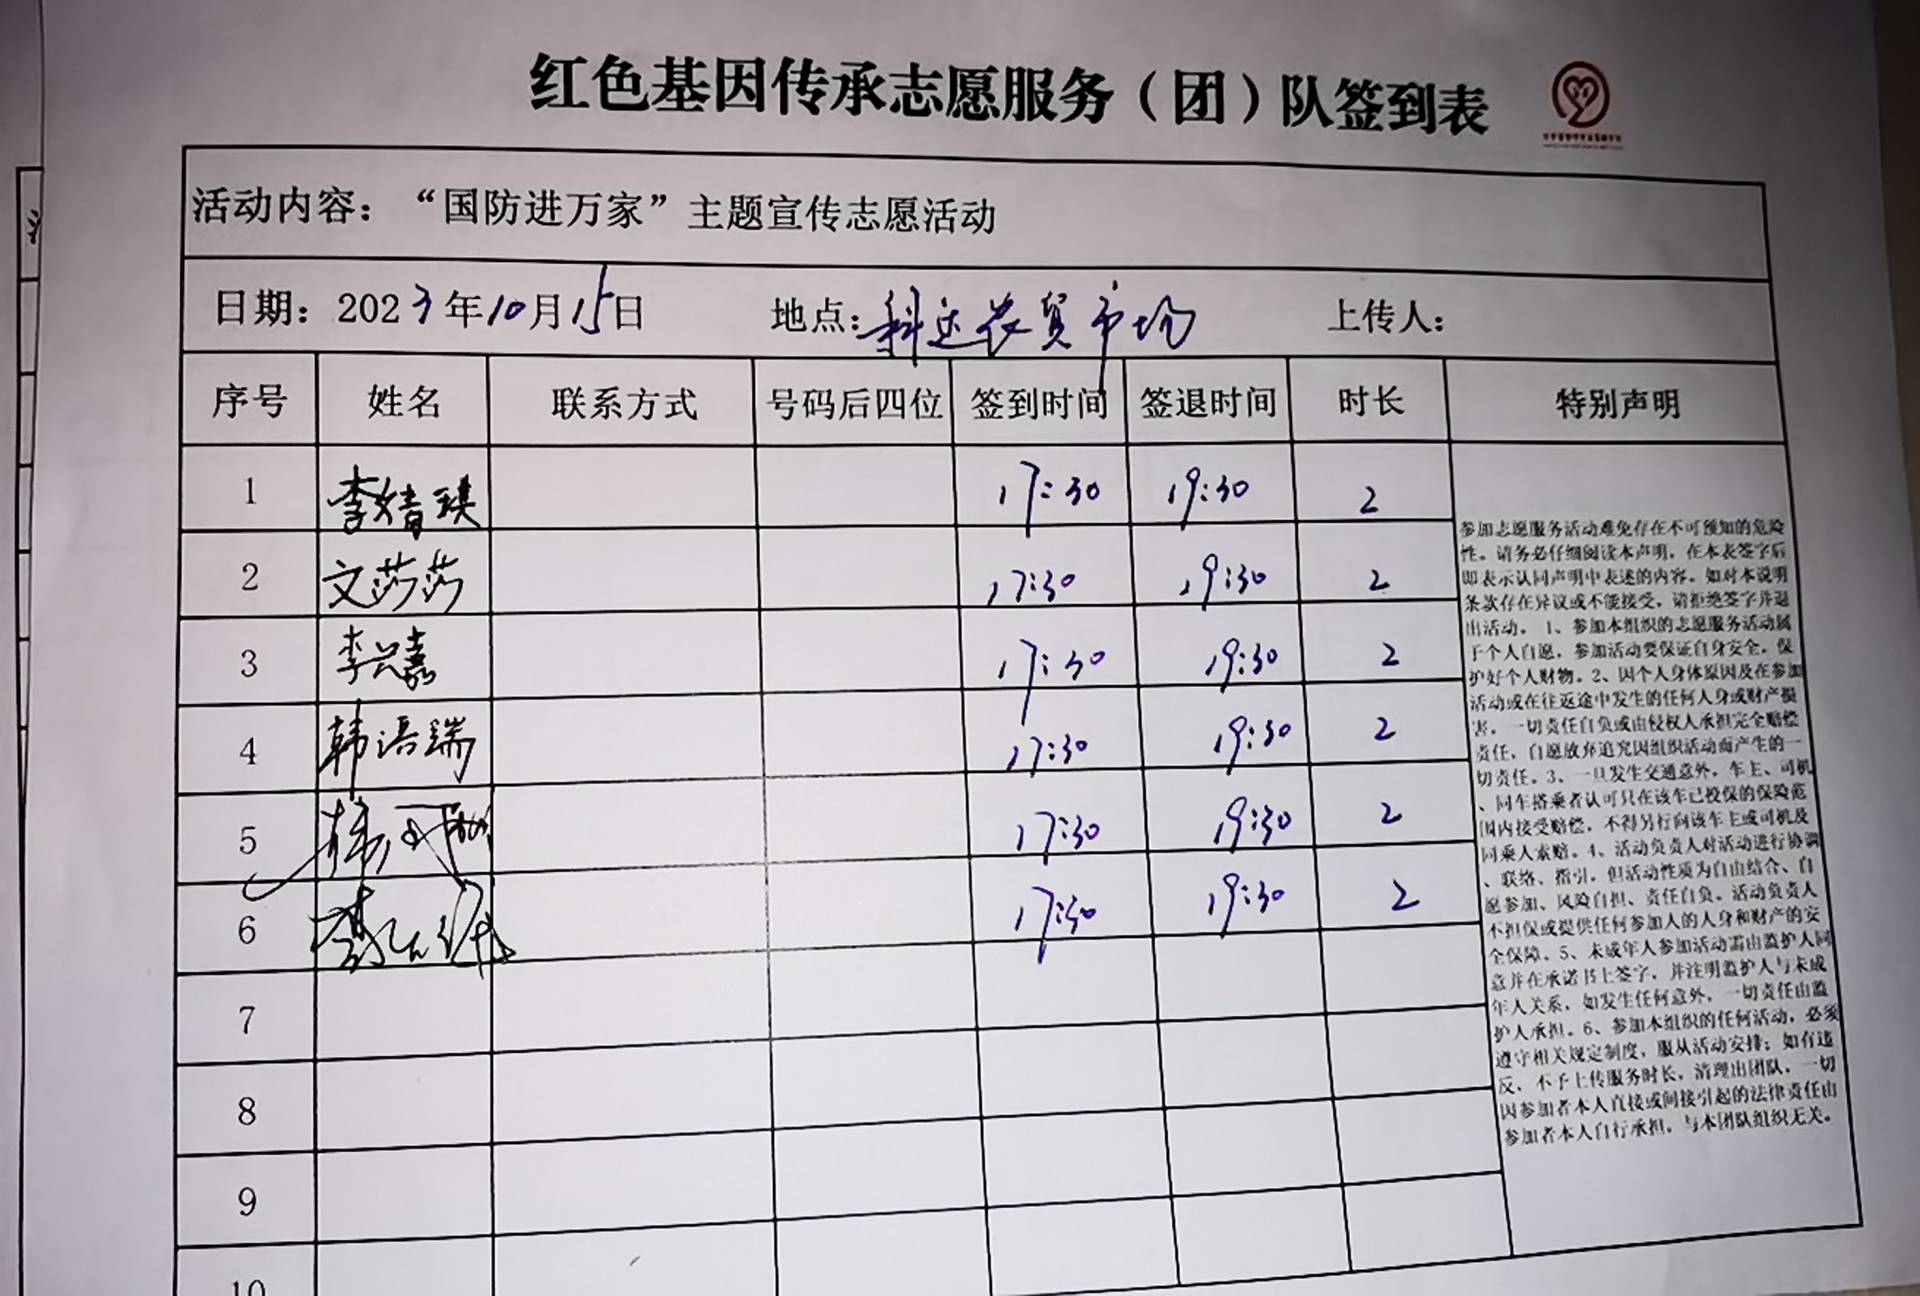 红色基因传承志愿服务（团）队签到表
活动内容：“国防进万家”主题宣传志愿活动
日期：2023年10月15日 地点：科达农贸市场 上传人：
序号 姓名 联系方式 号码后四位 签到时间 签退时间 时长 特别声明
1 李婧瑛 17:30 19:30 2
2 文莎莎 17:30 19:30 2
3 李兴嘉 17:30 19:30 2
4 韩语瑞 17:30 19:30 2
5 17:30 19:30 2
6 17:30 19:30 2
7
8
9
10
参加志愿服务活动难免存在不可预知的危险
性。请务必仔细阅读本声明，在本表签字后
即表示认同声明中表述的内容。如对本说明
条款存在异议或不能接受，请拒绝签字并退
出活动。1、参加本组织的志愿服务活动属
于个人自愿，参加活动要保证自身安全，保
护好个人财物。2、因个人身体原因及在参加
活动或在往返途中发生的任何人身或财产损
害，一切责任自负或由侵权人承担完全赔偿
责任，自愿放弃追究因组织活动而产生的一
切责任。3、一旦发生交通意外，车主、司机
、同车搭乘者认可只在该车已投保的保险范
围内接受赔偿，不得另行向该车主或司机及
同乘人索赔。4、活动负责人对活动进行协调
、联络、指引，但活动性质为自由结合、自
愿参加、风险自担、责任自负。活动负责人
不担保或提供任何参加人的人身和财产的安
全保障。5、未成年人参加活动需由监护人同
意并在承诺书上签字，并注明监护人与未成
年人关系，如发生任何意外，一切责任由监
护人承担。6、参加本组织的任何活动，必须
遵守相关规定制度，服从活动安排；如有违
反，不予上传服务时长，清理出团队，一切
因参加者本人直接或间接引起的法律责任由
参加者本人自行承担，与本团队组织无关。